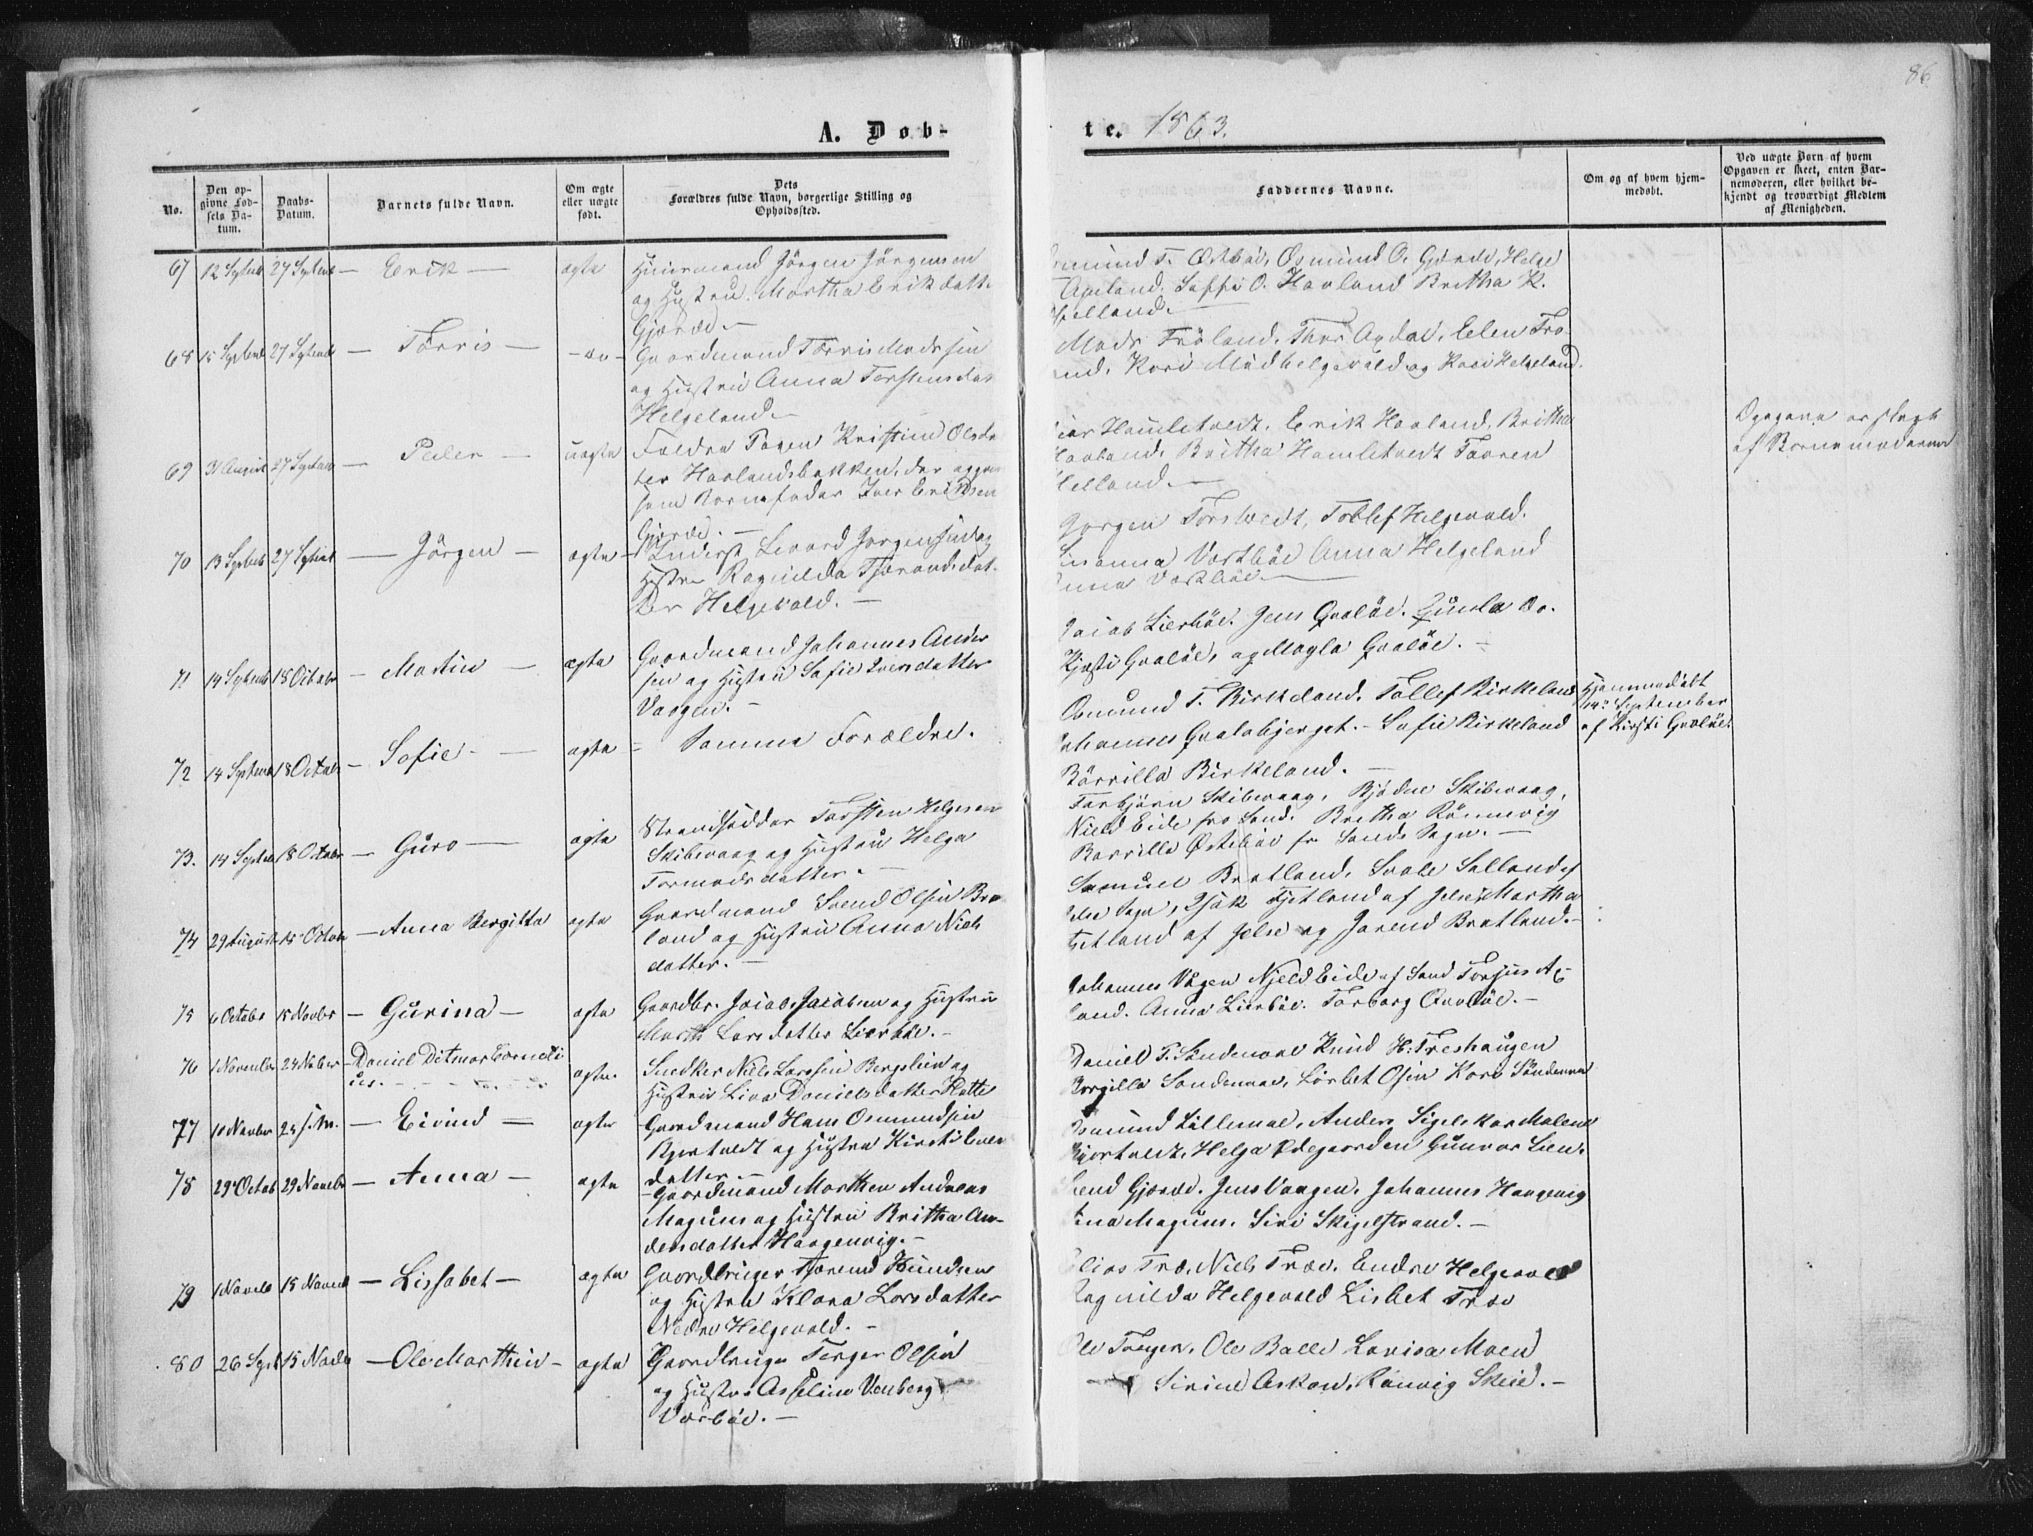 86
A. Døb-
te. 1863.
No.
Den op-
givne Fød-
sels Da-
tum.
Daabs-
Datum.
Barnets fulde Navn.
Om ægte
eller uægte
født.
Dets
Forældres fulde Navn, borgerlige Stilling og
Opholdssted.
Faddernes Navne.
Om og af hvem hjem-
medøbt.
Ved uægte Børn af hvem
Opgaven er skeet, enten Bar-
nemoderen, eller hvilket be-
kjendt og troværdigt Medlem
af Menigheden.
67 12 Septenb 27 Septenb — Erik — ægte
Huusmand Jörgen Jörgensen
og Hustru Martha Erikdatt.
Gjærde. —
Osmund O. Gjærde, Helge
Apeland. Soffi O. Havland Britha K.
Helland. —
68 15 Septenb 27 Septenb — Torris — — do —
Gaardmand Torris Madssen
og Hustru Anna Torstensdat
Helgeland. —
Mads Fröland, Thor Elen Fro-
land, Kari og Kari Helgeland.
69 31 August 27 Septenb — Peder — uægte
Kristine Olsdat
ter Havlandsbakken, der opgiver
som Barnefader Iver Eriksen
Gjærde. —
Hamletvedt, Erik Havland, Britha
Havland, Britha Hamletvedt
Helland. —
Opgave er skeet
af Barnemoderen
70 13 Septenb 27 Septenb — Jörgen — ægte —
Inderst Levard Jorgensen og
Hustru Ragnilda Tjerandsdat-
ter Helgevold. —
Jorgen Torstvedt, Tollef Helgevold.
Susanna Vastböe Anna Helgeland
Anna Vastböe —
71 14 Septenb 18 Octobr — Martin — ægte
Gaardmand Johannes Ander
sen og Hustru Sofie Iversdatter
Vaagen. —
Jacob Lierböe. Jens Gvaløe.
Kjersti Gvaløe, og Magla Gvaløe. —
72 14 Septenb 18 Octobr — Sofie — ægte
— Samme Forældre.
Osmund T. Birkeland. Tollef Birkeland
Johannes Gvalabjerget. — Sofie Birkeland
Börrilla Birkeland. —
Hjemmedøbt
14de September
af Kirsti Gvaløe.
73. 14 Septenb 18 Octobr — Guro — ægte
Strandsidder Torsten Helgesen
Skibevaag og Hustru Helga
Tormodsdatter. —
Torbjörn Skibevaag, Bjödne Skibevaag,
Nield Eide fra Sand. Britha Rönnevig
Borrilla Østeböe fr Sands Sogn. —
74 29 August 15 Octobr — Anna Bergitta ægte
Gaardmand Svend Olsen Bra-
land og Hustru Anna Niels
datter. —
Samuel Bratland, Svale Salland af
Jelse Sogn, Isak Tjetland af Jelse, Martha
Tjetland af Jelse og Jorend Bratland. —
75 6 October 15 Novbr — Gurina — ægte
Gaardbr. Jacob Jacobsen og Hustru
Marth Larsdatter Lierböe. —
Johannes Vågen Njeld Eide af Sand Torjus Ap
land. Anna Lierböe. Torborg Gvaløe. —
76 1 November 24 Novber — Daniel Ditmar Corneli
us. — ægte.
Snedker Niels Larssen Bergelien og
Hustru Liva Danielsdatter Hatte
Daniel T. Söndenaae Knud H. Treshaugen
Borgilla Sondenaae, Lisbet Osen Kari Söndenaae
77 10 Novbr 24 s. M. — Eivind — ægte
Gaardmand Hans Osmundsen
Bjortvedt og Hustru Kirsti
datter —
Osmund Lillemoe, Anders Sigelskar Malene
Bjortvedt, Helga Ødegaarden Gunvor Lien.
78 29 Octob 29 Novebr — Anna — ægte
— Gaardmand Marthen Andreas
Magnus og Hustru Britha An-
dersdatter Haagenvig. —
Svend Gjærde. Jens Vaagen. Johannes Haagenvig
Ana Magnus. Siri Skigelstrand. —
79 1 Noveb 15 Noveb — Lissabet — ægte
Gaardbruger Tjerend Knudsen
og Hustru Klara Larsdatter
Nedre Helgevold. —
Elias Træ, Niels Træe, Endre Helgevold
Ragnilda Helgevold Lisbet Træe
80 26 Sept 15 Novbr — Ole Marthin — ægte
Gaardbruger Torger Olsen
og Hustru Asseline Vanberg
Varböe. —
Ole Torger, Ole Balle Lovisa Moen
Sirine Askan, Rönvig Skeie. —